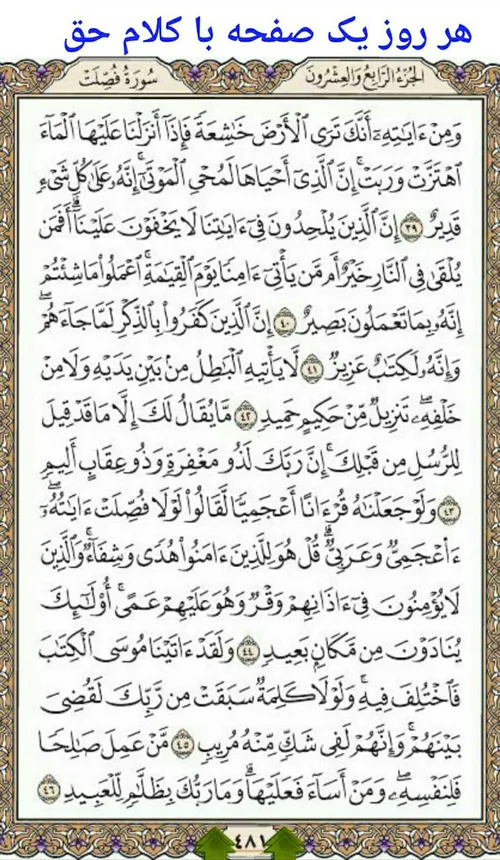 هر روز یک صفحه با کلام حق
الجزء الرابع والعشرون
سورة فصلت
وَمِنْ ءَايَٰتِهِۦٓ أَنَّكَ تَرَى ٱلْأَرْضَ خَٰشِعَةً فَإِذَآ أَنزَلْنَا عَلَيْهَا ٱلْمَآءَ
ٱهْتَزَّتْ وَرَبَتْ ۚ إِنَّ ٱلَّذِىٓ أَحْيَاهَا لَمُحْىِ ٱلْمَوْتَىٰٓ ۚ إِنَّهُۥ عَلَىٰ كُلِّ شَىْءٍ
قَدِيرٌ ٣٩ إِنَّ ٱلَّذِينَ يُلْحِدُونَ فِىٓ ءَايَٰتِنَا لَا يَخْفَوْنَ عَلَيْنَآ ۗ أَفَمَن
يُلْقَىٰ فِى ٱلنَّارِ خَيْرٌ أَم مَّن يَأْتِىٓ ءَامِنًا يَوْمَ ٱلْقِيَٰمَةِ ۚ ٱعْمَلُوا۟ مَا شِئْتُمْ
إِنَّهُۥ بِمَا تَعْمَلُونَ بَصِيرٌ ٤٠ إِنَّ ٱلَّذِينَ كَفَرُوا۟ بِٱلذِّكْرِ لَمَّا جَآءَهُمْ ۖ
وَإِنَّهُۥ لَكِتَٰبٌ عَزِيزٌ ٤١ لَّا يَأْتِيهِ ٱلْبَٰطِلُ مِنۢ بَيْنِ يَدَيْهِ وَلَا مِنْ
خَلْفِهِۦ ۖ تَنزِيلٌ مِّنْ حَكِيمٍ حَمِيدٍ ٤٢ مَّا يُقَالُ لَكَ إِلَّا مَا قَدْ قِيلَ
لِلرُّسُلِ مِن قَبْلِكَ ۚ إِنَّ رَبَّكَ لَذُو مَغْفِرَةٍ وَذُو عِقَابٍ أَلِيمٍ
٤٣ وَلَوْ جَعَلْنَٰهُ قُرْءَانًا أَعْجَمِيًّا لَّقَالُوا۟ لَوْلَا فُصِّلَتْ ءَايَٰتُهُۥٓ ۖ
ءَا۬عْجَمِىٌّ وَعَرَبِىٌّ ۗ قُلْ هُوَ لِلَّذِينَ ءَامَنُوا۟ هُدًى وَشِفَآءٌ ۖ وَٱلَّذِينَ
لَا يُؤْمِنُونَ فِىٓ ءَاذَانِهِمْ وَقْرٌ وَهُوَ عَلَيْهِمْ عَمًى ۚ أُو۟لَٰٓئِكَ
يُنَادَوْنَ مِن مَّكَانٍۭ بَعِيدٍ ٤٤ وَلَقَدْ ءَاتَيْنَا مُوسَى ٱلْكِتَٰبَ
فَٱخْتُلِفَ فِيهِ ۗ وَلَوْلَا كَلِمَةٌ سَبَقَتْ مِن رَّبِّكَ لَقُضِىَ
بَيْنَهُمْ ۚ وَإِنَّهُمْ لَفِى شَكٍّ مِّنْهُ مُرِيبٍ ٤٥ مَّنْ عَمِلَ صَٰلِحًا
فَلِنَفْسِهِۦ ۖ وَمَنْ أَسَآءَ فَعَلَيْهَا ۗ وَمَا رَبُّكَ بِظَلَّٰمٍ لِّلْعَبِيدِ ٤٦
٤٨١